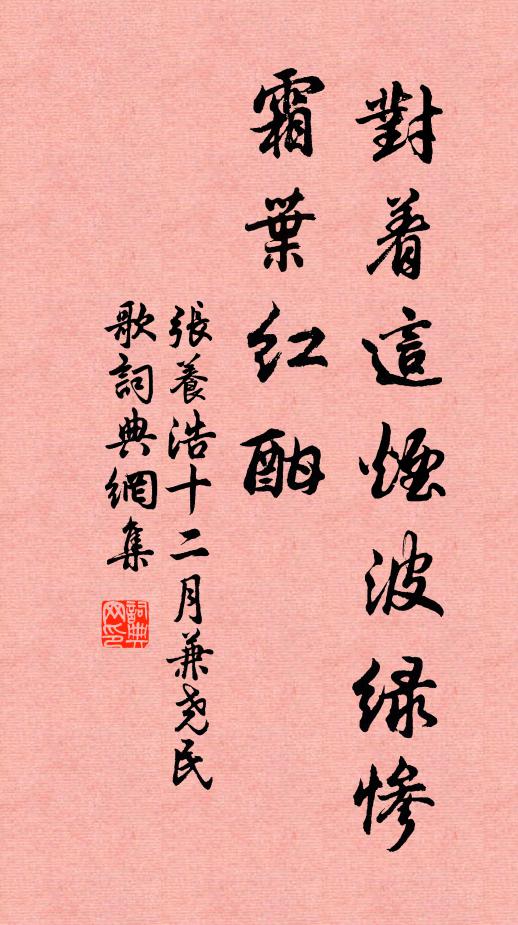 對着這煙波綠慘
霜葉紅酣
張養浩十二月兼尧民
歌詞典網集
詞典网印